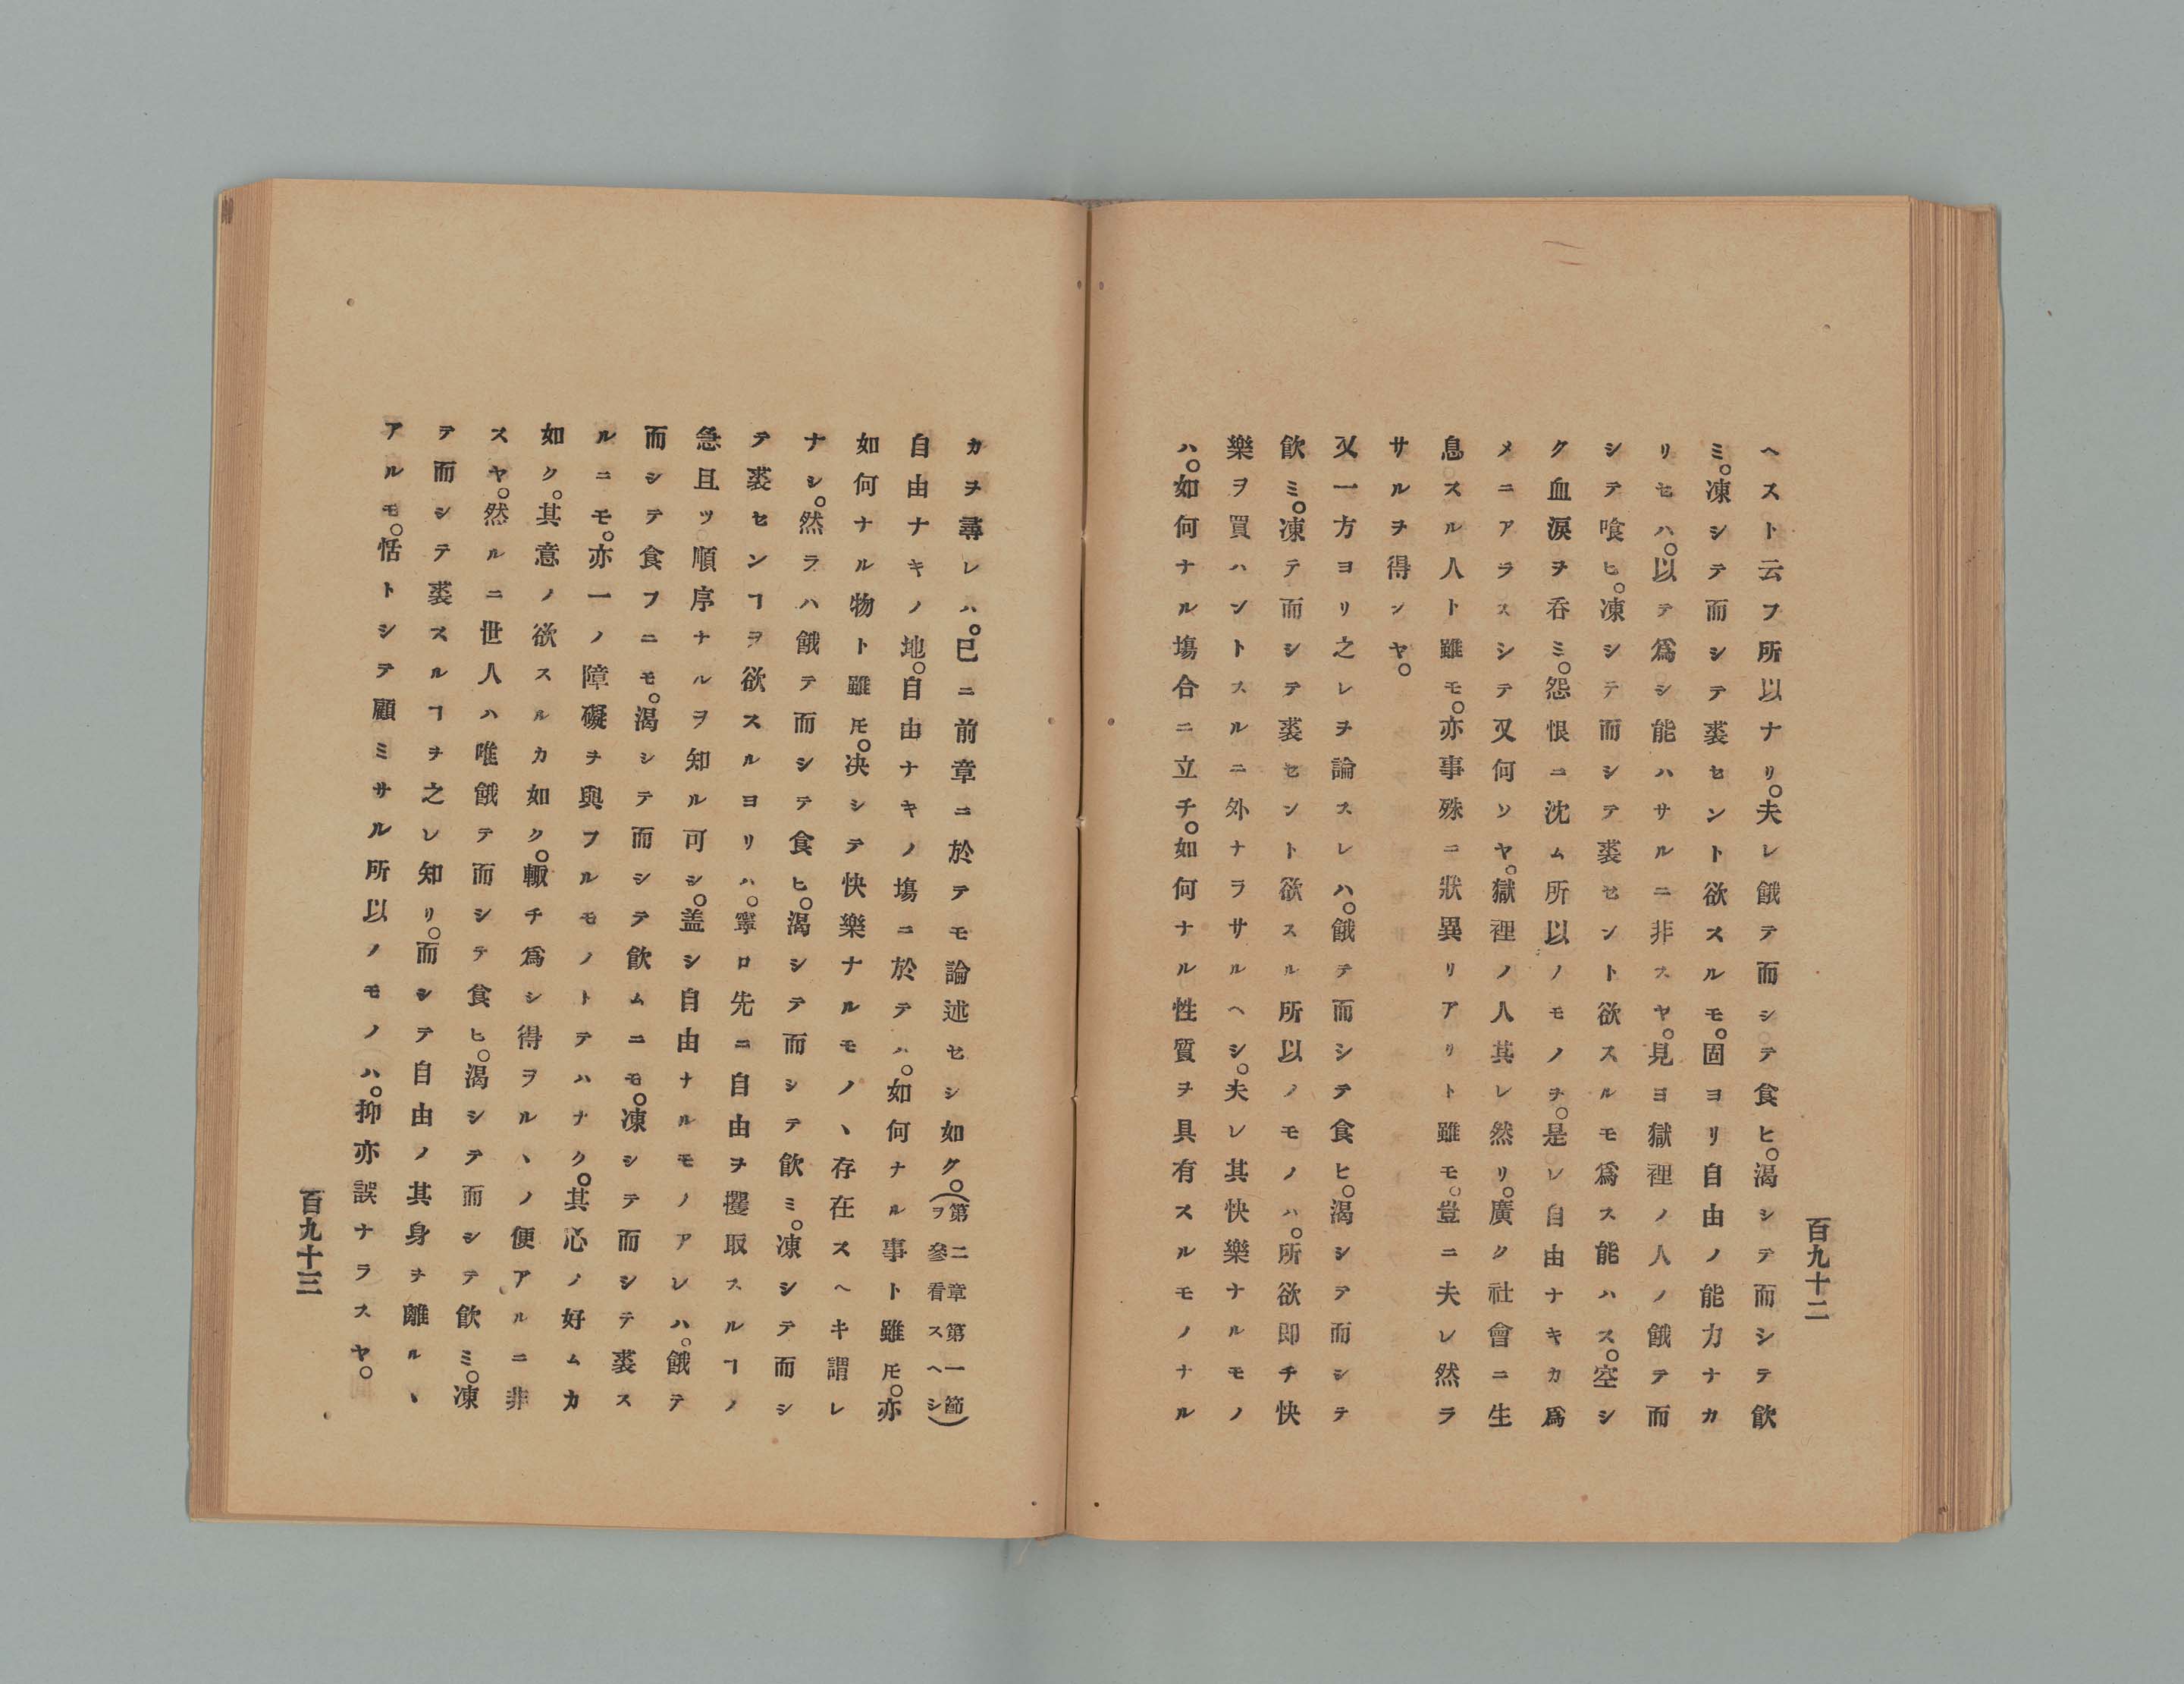 百九十二
ヘスト云フ所以ナリ。夫レ餓テ而シテ食ヒ。渴シテ而シテ飮
ミ。凍シテ而シテ裘セント欲スルモ。固ヨリ自由ノ能力ナカ
リセハ。以テ爲シ能ハサルニ非スヤ。見ヨ獄裡ノ人ノ餓テ而
シテ喰ヒ。凍シテ而シテ裘セント欲スルモ爲ス能ハス。空シ
ク血淚ヲ呑ミ。怨恨ニ沈ム所以ノモノヲ。是レ自由ナキカ爲
メニアラスシテ又何ソヤ。獄裡ノ人其レ然リ。廣ク社會ニ生
息スル人ト雖モ。亦事殊ニ狀異リアリト雖モ。豈ニ夫レ然ラ
サルヲ得ンヤ。
又一方ヨリ之レヲ論スレハ。餓テ而シテ食ヒ。渴シテ而シテ
飮ミ。凍テ而シテ裘セント欲スル所以ノモノハ。所欲即チ快
樂ヲ買ハントスルニ外ナラサルヘシ。夫レ其快樂ナルモノ
ハ。如何ナル塲合ニ立チ。如何ナル性質ヲ具有スルモノナル
カヲ尋レハ。已ニ前章ニ於テモ論述セシ如ク。(第二章第一節ヲ參看スヘシ)
自由ナキノ地。自由ナキノ塲ニ於テハ。如何ナル事ト雖𪜈。亦
如何ナル物ト雖𪜈。决シテ快樂ナルモノヽ存在スヘキ謂レ
ナシ。然ラハ餓テ而シテ食ヒ。渴シテ而シテ飮ミ。凍シテ而シ
テ裘センヿヲ欲スルヨリハ。寧ロ先ニ自由ヲ攫取スルヿノ
急且ツ順序ナルヲ知ル可シ。盖シ自由ナルモノアレハ。餓テ
而シテ食フニモ。渴シテ而シテ飮ムニモ。凍シテ而シテ裘ス
ルニモ。亦一ノ障礙ヲ與フルモノトテハナク。其心ノ好ムカ
如ク。其意ノ欲スルカ如ク。輙チ爲シ得ヲルヽノ便アルニ非
スヤ。然ルニ世人ハ唯餓テ而シテ食ヒ。渴シテ而シテ飮ミ。凍
テ而シテ裘スルヿヲ之レ知リ。而シテ自由ノ其身ヲ離ルヽ
アルモ。恬トシテ顧ミサル所以ノモノハ。抑亦誤ナラスヤ。
百九十三